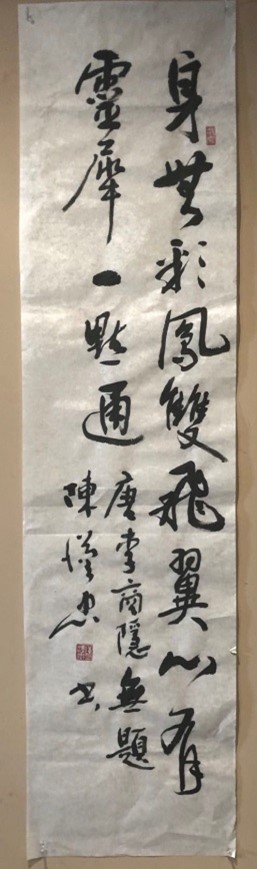 身無彩鳳雙飛翼心有
靈犀一點通
唐李商隱無題
陳漢忠書